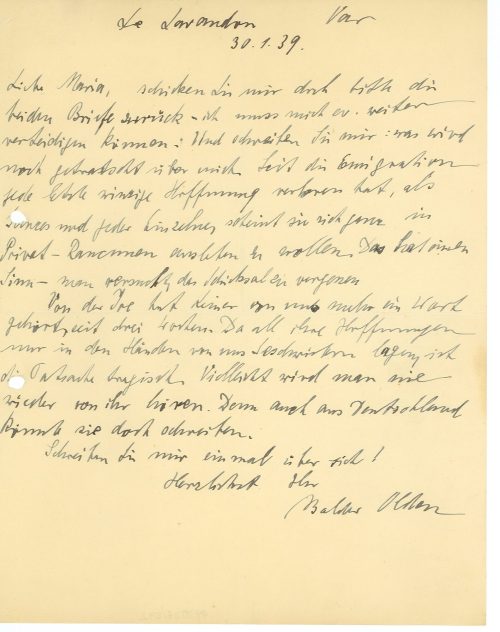 Le Lavandou Var
30.1.39.
Liebe Maria, schicken Sie mir doch bitte die
beiden Briefe zurück - ich muss mich ev. weiter
verteidigen können: Und schreiben Sie mir: was wird
noch getratscht über mich. Seit die Emigration
jede letzte winzige Hoffnung verloren hat, als
Ganzes und jeder Einzelne, scheint sie sich ganz in
Privat-Rancunen ausleben zu wollen. Das hat einen
Sinn - man versucht, das Schicksal zu vergessen
Von der Ilse hat keiner von uns mehr ein Wort
gehört, seit drei Wochen. Da all ihre Hoffnungen
nur in den Händen von uns Geschwistern lagen, ist
die Tatsache tragisch. Vielleicht wird man nie
wieder von ihr hören. Denn auch aus Deutschland
könnte sie doch schreiben.
Schreiben Sie mir einmal über sich!
Herzlichst Ihr
Balder Olden